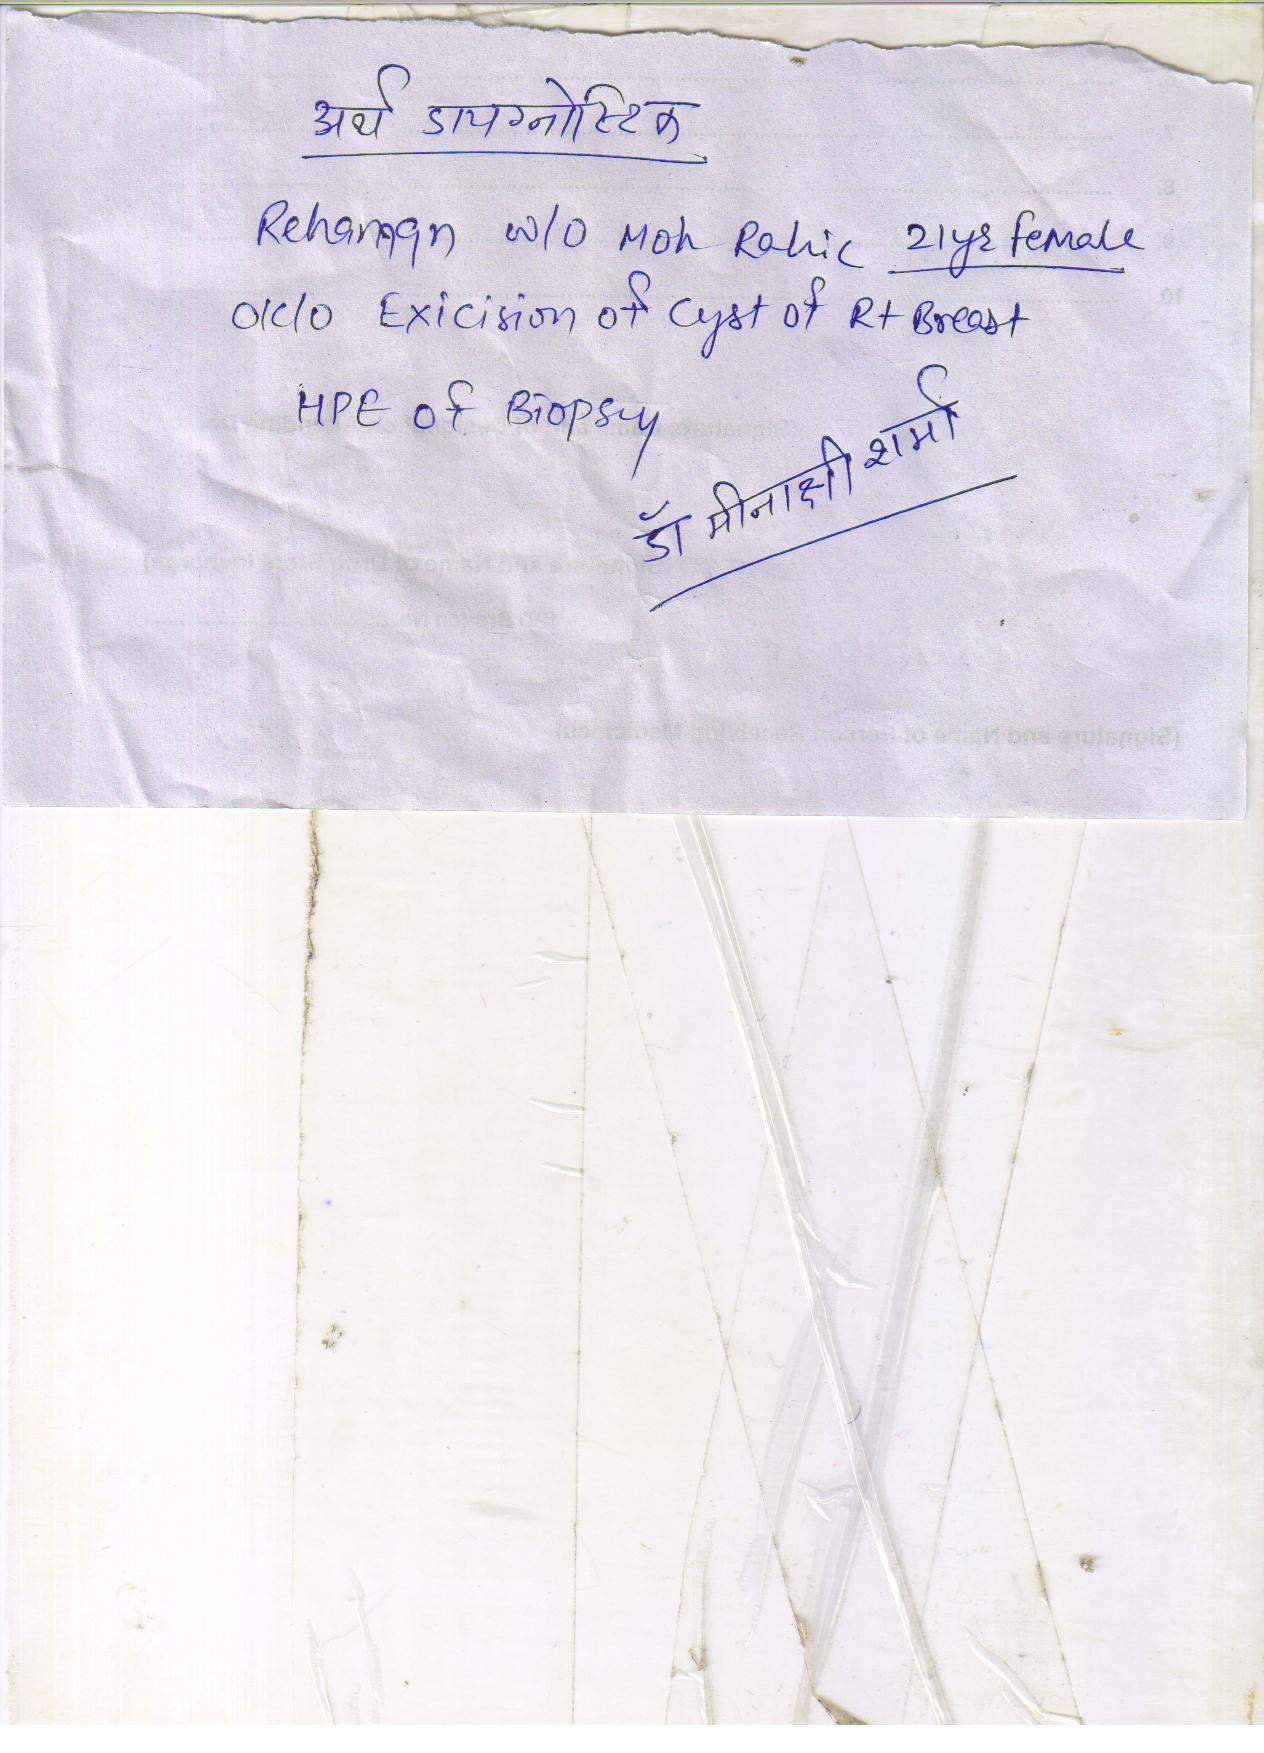 अर्थ डायग्नोस्टिक
Rehanaan w/o Moh Rahic 21yr female
O/c/o Exicision of Cyst of Rt Breast
HPE of Biopsy
डॉ मीनाक्षी शर्मा
7.
8.
9.
10.
(Signature and Name of Person Receiving Medicines)